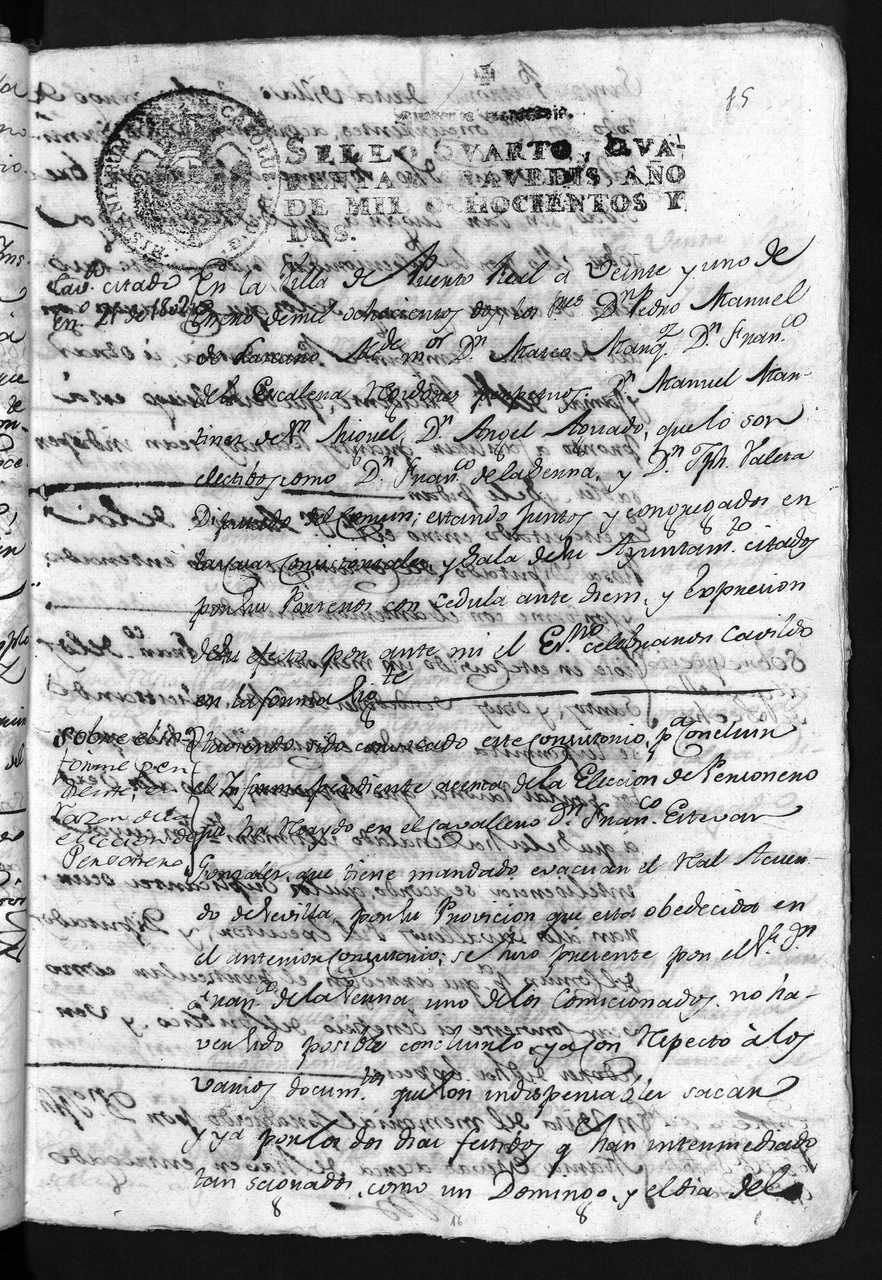 85
SELLO QVARTO, QVA-
RENTA MARAVEDIS, AÑO
DE MIL OCHOCIENTOS Y
DOS.
HISPANIARUM CAROLUS D. G.
Cavdo. citado
En 21 de 1802
En la Villa de Puerto Real à Veinte y uno de
Enero de mil ochocientos dos, los Sres Dn Pedro Manuel
de Lazcano Alcde mor Dn Marco Manq.z Dn Franco
de la Escalera Regidores perpetuos, Dn Manuel Mar-
tinez de Sn Miguel, Dn Angel Aguado, que lo son
electibos, como Dn Franco de la Serna, y Dn Jph. Valera
Diputado del Comun; estando juntos y congregados en
las casas Consistoriales y Sala de su Ayuntamto. citados
por su Porteros con cedula ante diem, y Expresion
de su efecto, por ante mi el Esno celebraron Cavildo
en la forma sigte
Sobre el in-
forme pen
diente, en
razon de la
eleccion de
Personero
Haviendo sido convocado este Consistorio, pa Concluir
el Informe pendiente acerca de la Eleccion de Personero
que ha Recaydo en el Cavallero Dn Franco Estevan
Gonzalez, que tiene mandado evacuar el Real Acuer-
do de Sevilla, por su Provicion que esta obedecida en
el anterior Consistorio; se hizo presente por el Sr. Dn
Franco de la Serna uno de los Comicionados. no ha-
ver sido posible concluirlo, ya con Respecto à los
varios documtos que son indispensables sacar
y ya por los dos dias festibos q han intermediado
tan seguados, como un Domingo, y el dia del